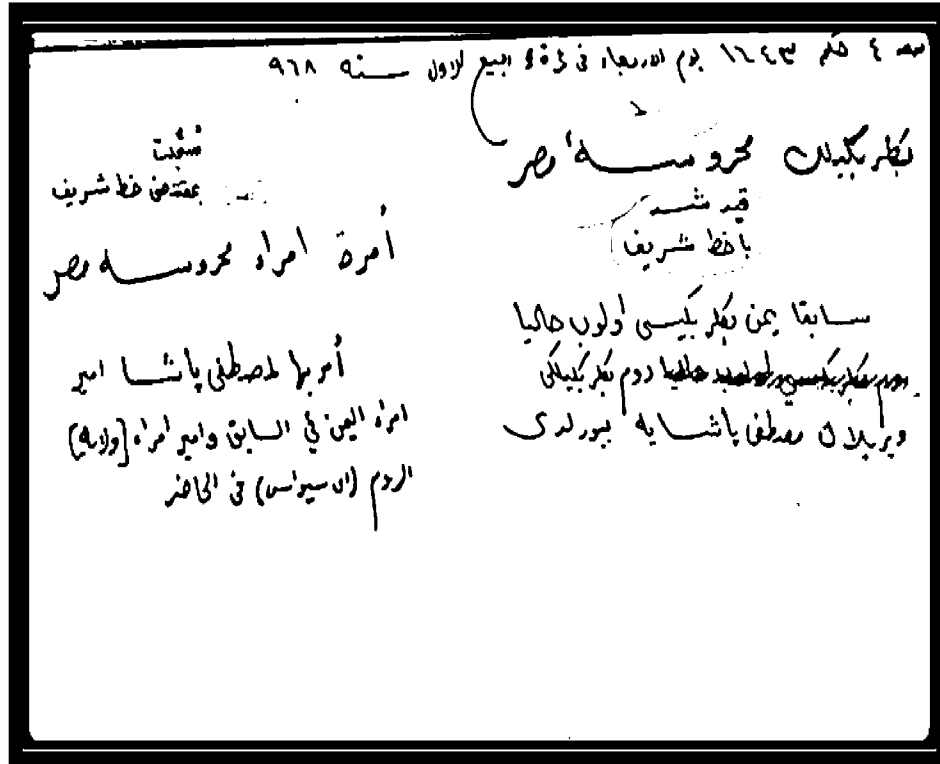 ٤ حكم ١٦٤٣ يوم الاربعاء فى غرة ربيع الاول سنه ٩٦٨
بكلربكيلك محروسهٔ مصر
قيد شد
باخط شريف
سابقا يمن بكلربكيسى اولوب حاليا
روم بكلربكيلكى
ويريلان مصطفى پاشايه بيورلدى
سجلت
بمقتضى خط شريف
أمرة امراء محروسه مصر
أمر بها لمصطفى پاشا امير
امراء اليمن في السابق وامير امراء [ولاية]
الروم (اى سيواس) فى الحاضر